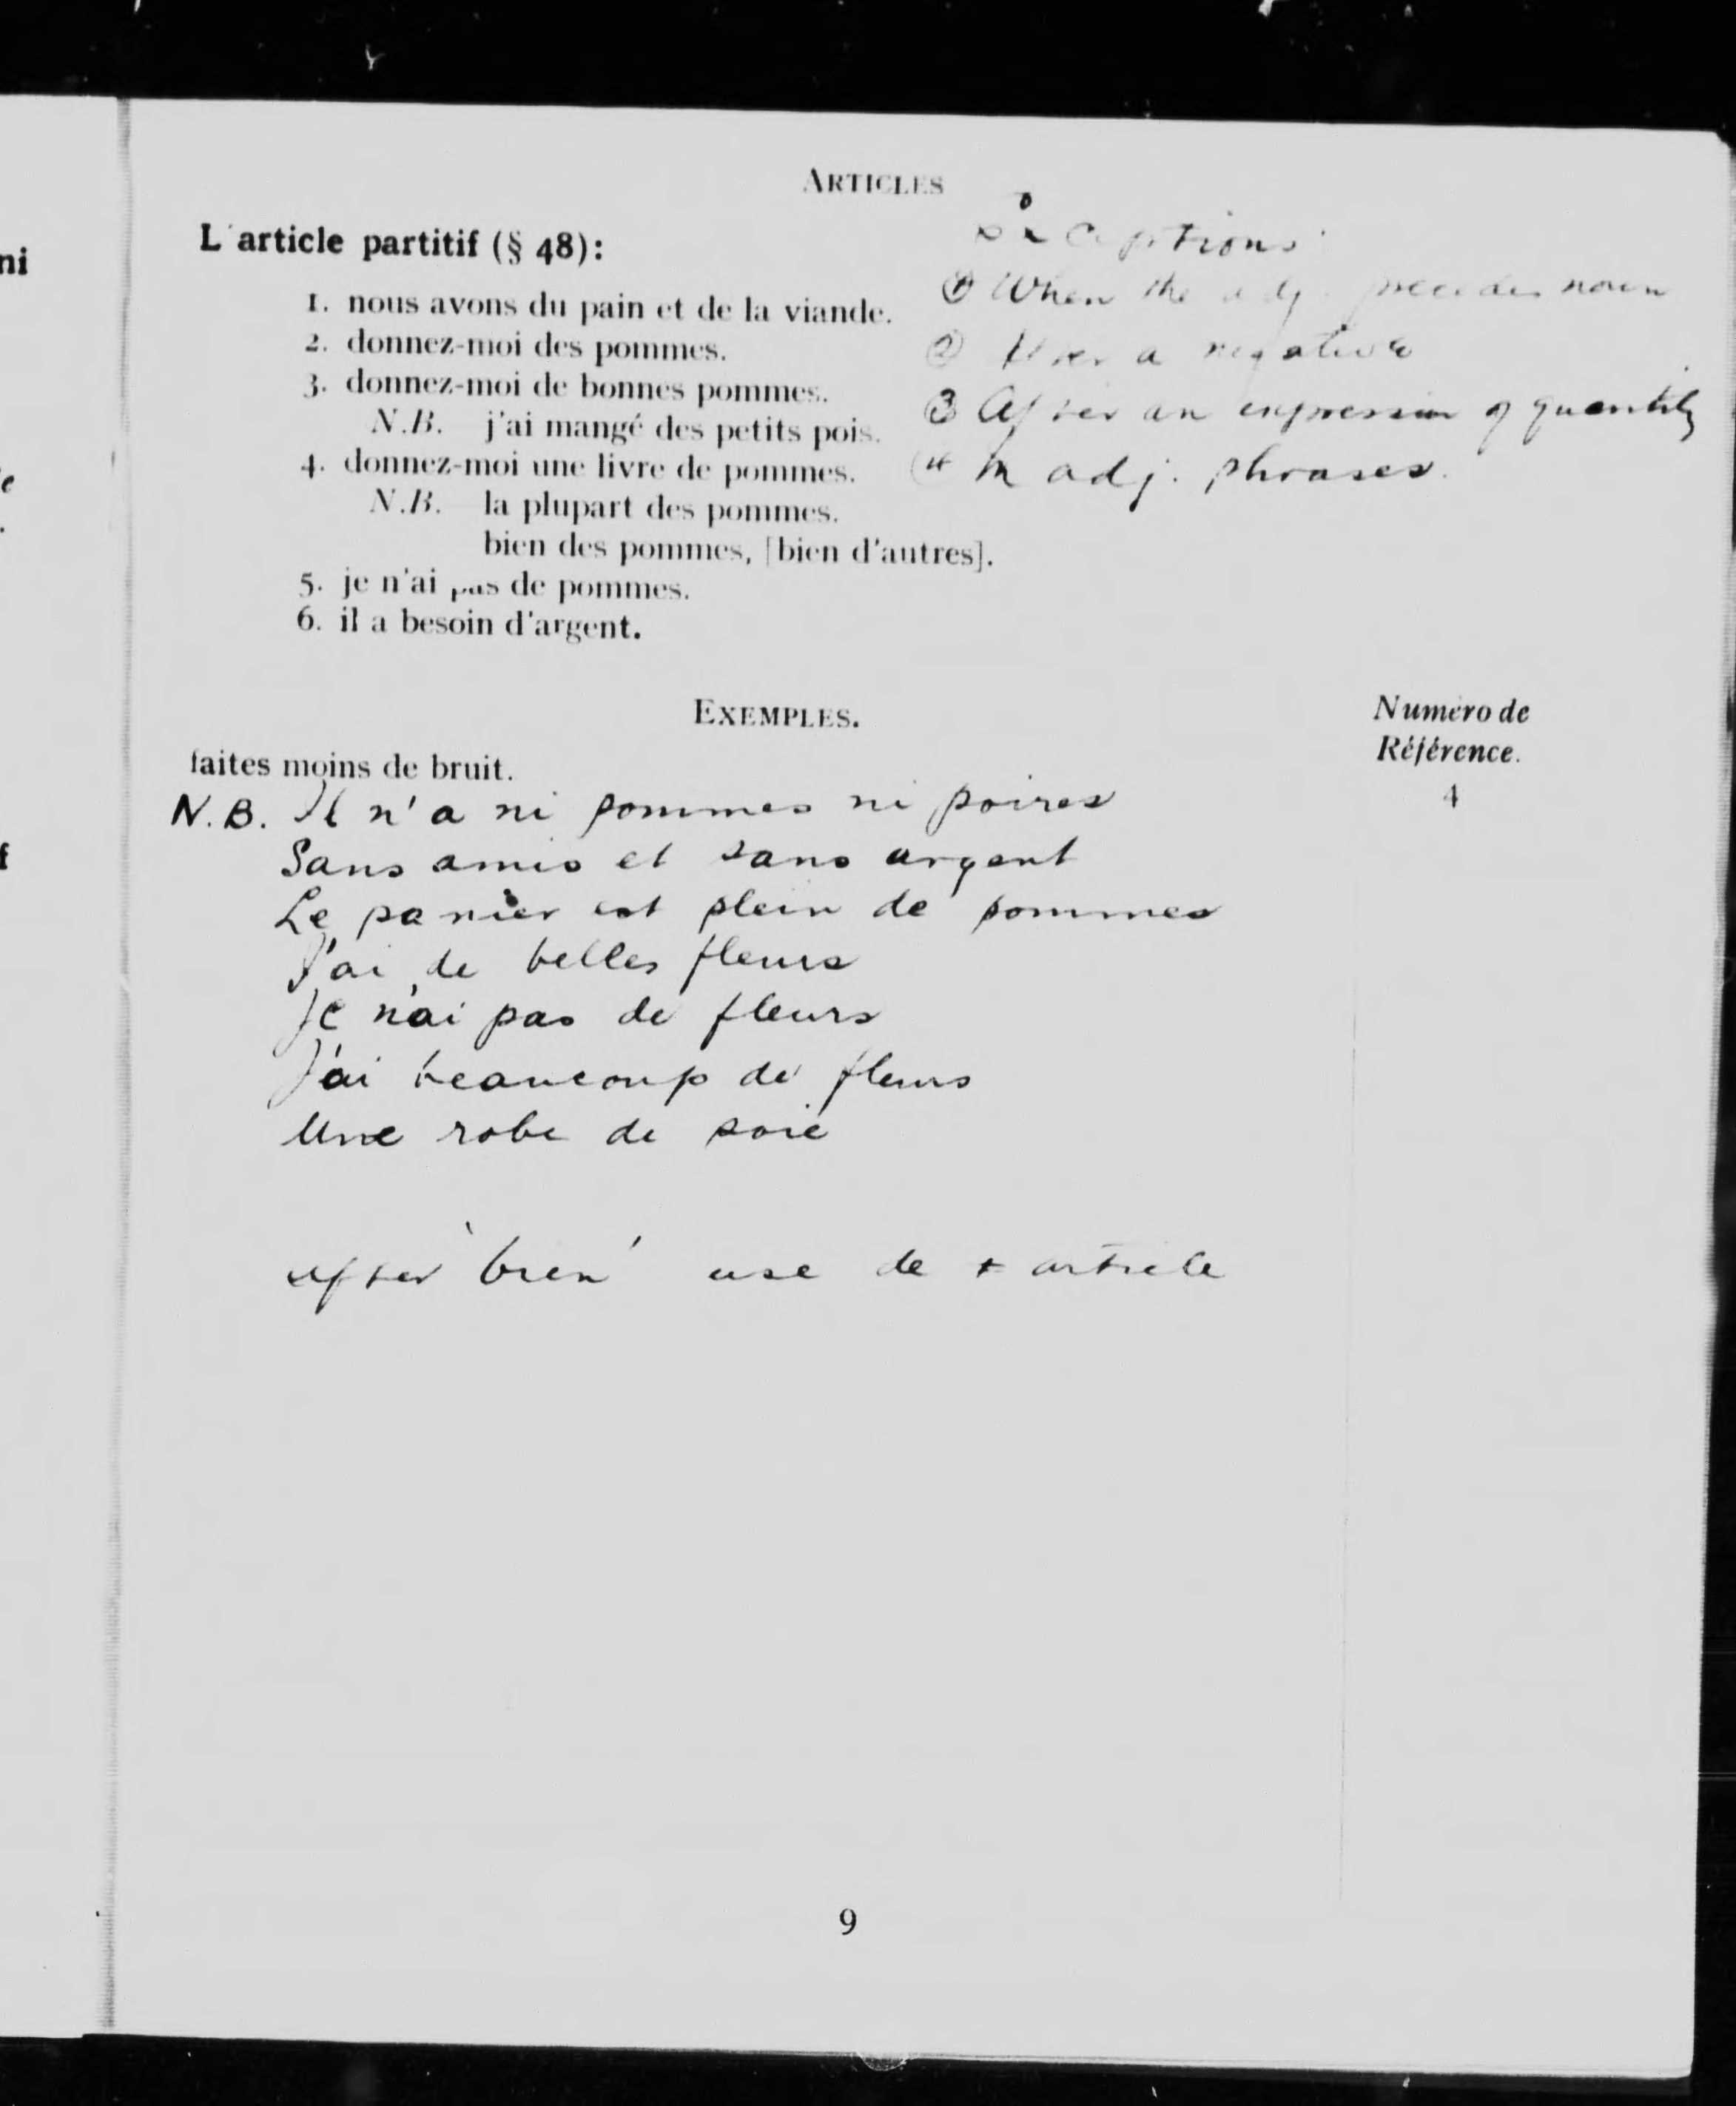 ARTICLES
L'article partitif (§ 48):
1. nous avons du pain et de la viande.
2. donnez-moi des pommes.
3. donnez-moi de bonnes pommes.
N.B. j'ai mangé des petits pois.
4. donnez-moi une livre de pommes.
N.B. la plupart des pommes.
bien des pommes, [bien d'autres].
5. je n'ai pas de pommes.
6. il a besoin d'argent.
exceptions
① When the adj. precedes noun
② After a negative
③ After an expression of quantity
④ In adj. phrases.
EXEMPLES.
Numéro de
Référence.
faites moins de bruit.
4
N.B. Il n'a ni pommes ni poires
Sans amis et sans argent
Le panier est plein de pommes
J'ai de belles fleurs
Je n'ai pas de fleurs
J'ai beaucoup de fleurs
Une robe de soie
after 'bien' use de + article
9
ni
e
f